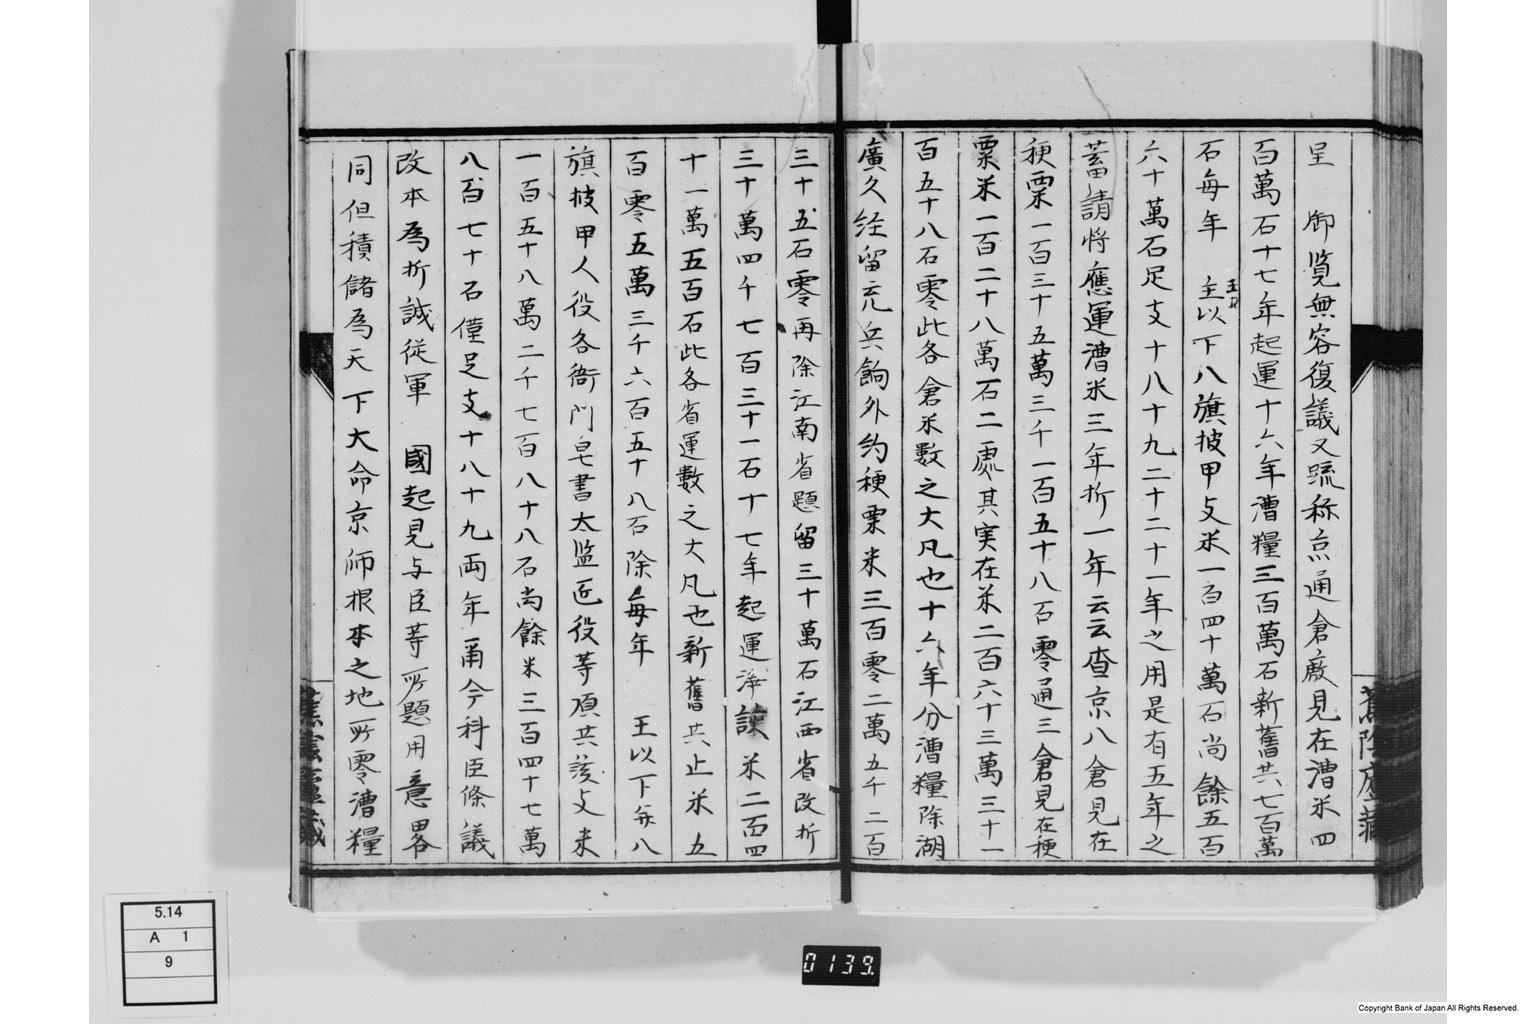 呈　御覧無容復議又疏称京通倉廒見在漕米四
百萬石十七年起運十六年漕糧三百萬石新舊共七百萬
石毎年　主以下八旗披甲支米一百四十萬石尚餘五百
六十萬石足支十八十九二十二十一年之用是有五年之
蓄請将應運漕米三年折一年云云查京八倉見在
稉粟一百三十五萬三千一百五十八石零通三倉見在稉
粟米一百二十八萬石二處其実在米二百六十三萬三十一
百五十八石零此各倉米數之大凡也十六年分漕糧除湖
廣久経留充兵餉外約稉粟米三百零二萬五千二百
三十五石零再除江南省題留三十萬石江西省改折
三十萬四千七百三十一石十七年起運米二百四
十一萬五百石此各省運數之大凡也新舊共止米五
百零五萬三千六百五十八石除毎年　王以下毎八
旗披甲人役各衙門皂書太監匠役等項共該支米
一百五十八萬二千七百八十八石尚餘米三百四十七萬
八百七十石僅足支十八十九両年甭今科臣條議
改本為折誠従軍　國起見与臣等所題用意畧
同但積儲為天下大命京師根本之地所零漕糧
5.14
A 1
9
0139.
Copyright Bank of Japan All Rights Reserved.